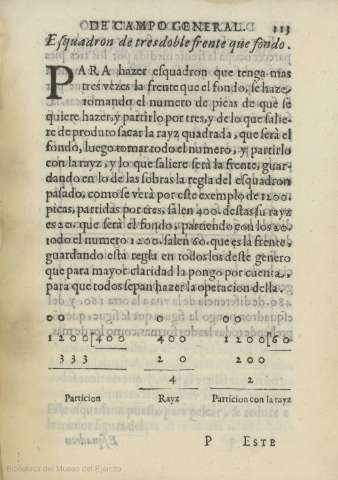 DE CAMPO GENERAL. 113
Esquadron de tresdoble frente que fondo.
PARA hazer esquadron que tenga mas
tres vezes la frente que el fondo, se haze,
tomando el numero de picas de que se
quiere hazer, y partirlo por tres, y de lo que salie-
re de produto sacar la rayz quadrada, que será el
fondo, luego tomar todo el numero, y partirlo
con la rayz, y lo que saliere será la frente, guar-
dando en lo de las sobras la regla del esquadron
pasado, como se verá por este exemplo de 1200.
picas, partidas por tres, salen 400. destas su rayz
es 20. que será el fondo, partiendo con los 20.
todo el numero 1200. salen 60. que es la frente,
guardando está regla en todos los deste genero
que para mayor claridad la pongo por cuenta,
para que todos sepan hazer la operacion della.
00 00 00
1200[400 400 1200[60
333 20 200
4 2
Particion Rayz Particion con la rayz
P ESTE
Biblioteca del Museo del Ejército